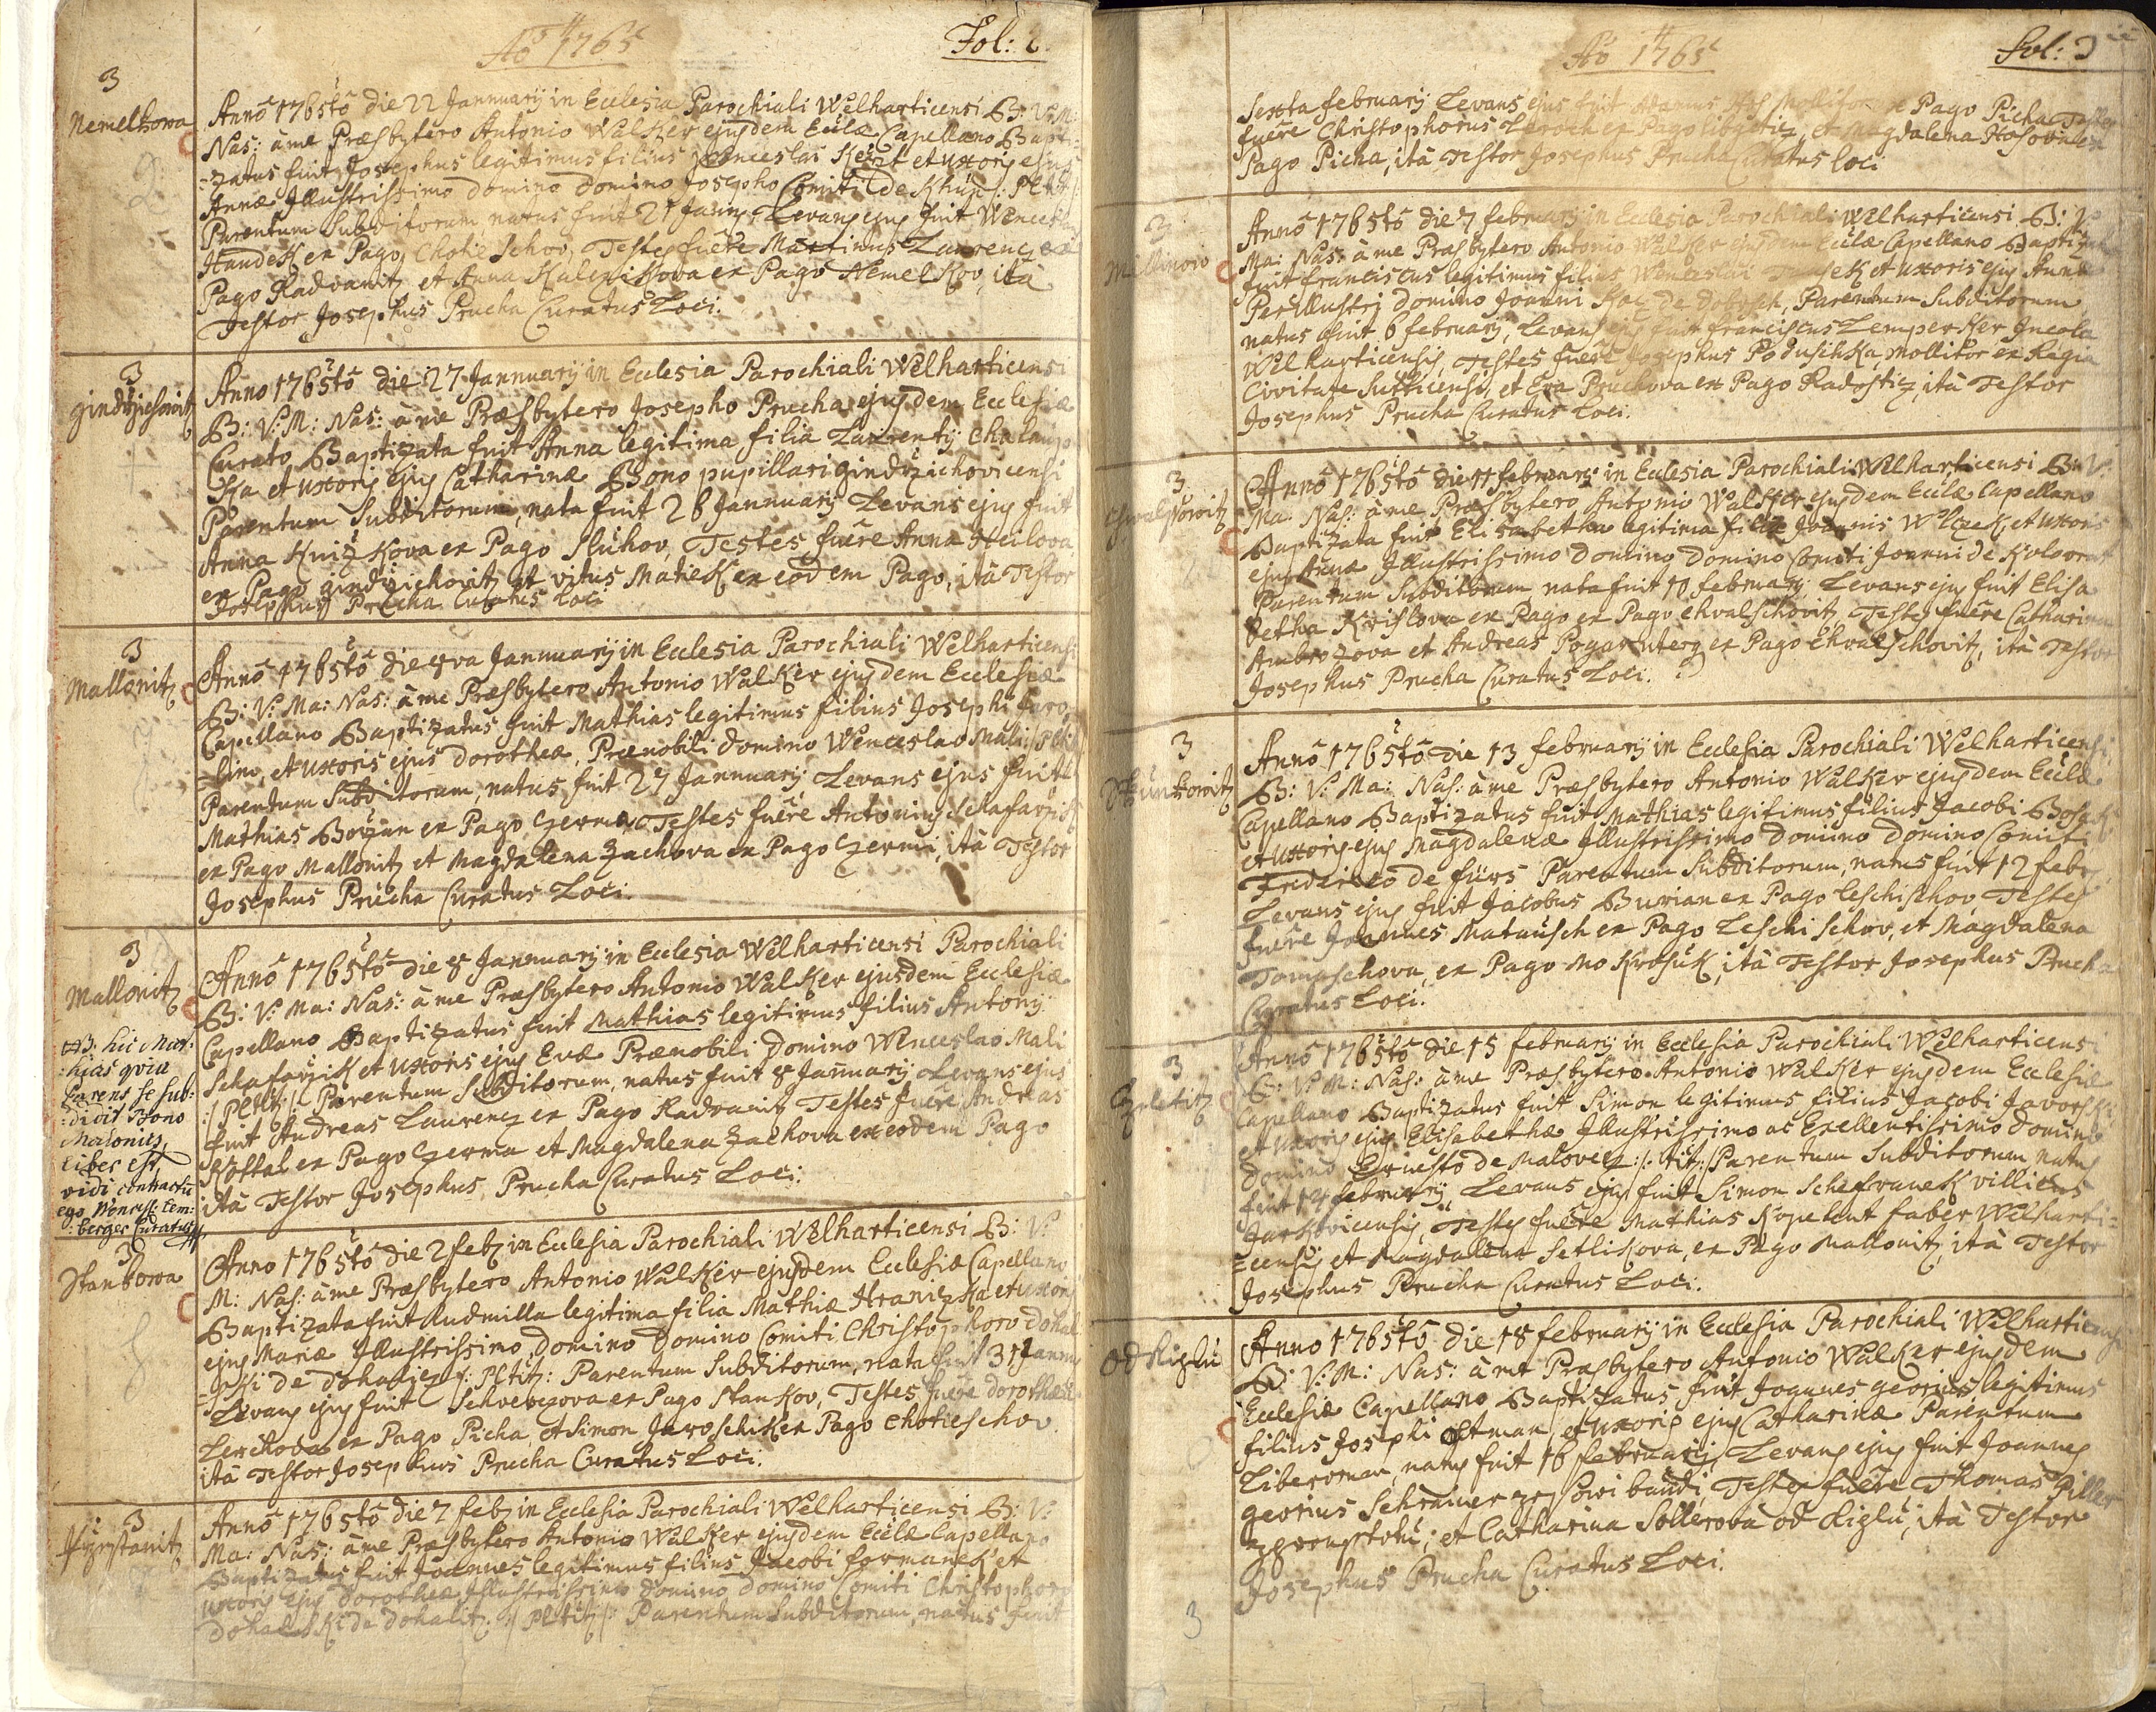 Aõ 1765
Fol: 2.
3
Nemelkowa
Anno 1765to die 22 Jannuarij in Ecclesia Parochiali Welharticensi B: V: M:
Nas: à me Præsbytero Antonio Walker ejusdem Ecclæ Capellano Bapti-
=zatus fuit Josephus legitimus filius Wenceslai et uxoris ejus
Annæ Illustrissimo Domino Domino Josepho Comiti de Khün
Parentum Subditorum, natus fuit 21 Janny Levans ejus fuit Wenceslaus
Handek ex Pago Chotieschov, Testes fuêre Martinus Laurencz ex
Pago Radvanitz et Anna Kalenikova ex Pago Nemelkov, ità
Testor Josephus Prucha Curatus Loci.
3
gindrzichowitz
Anno 1765to die 27 Jannuarij in Ecclesia Parochiali Welharticensi
B: V: M: Nas: à me Præsbytero Josepho Prucha ejusdem Ecclesiæ
Curato Baptizata fuit Anna legitima filia Laurentij Chalup
Ka et uxoris ejus Catharinæ Bono pupillari gindrzichovicensi
Parentum Subditorum, nata fuit 26 Jannuarij Levans ejus fuit
Anna Knizkova ex Pago Sluhov, Testes fuêre Anna Heilova
ex Pago gindrzichovitz et vitus Matiek ex eodem Pago, ità Testor
Josephus Prucha Curatus Loci
3
Mallonitz
Anno 1765to die 28va Jannuarij in Ecclesia Parochiali Welharticensi
B: V: Ma: Nas: à me Præsbytero Antonio Walker ejusdem Ecclesiæ
Capellano Baptizatus fuit Mathias legitimus filius Josephi
et uxoris ejus Dorotheæ, Prænobili Domino Wenceslao Mali
Parentum Subditorum, natus fuit 27 Jannuarij Levans ejus fuit
Mathias ex Pago Czerma, Testes fuêre Antonius Schafarzik
ex Pago Mallonitz et Magdalena Zachova ex Pago Czerma, ità Testor
Josephus Prucha Curatus Loci.
3
Mallonitz
NB: hic Mat:
:hias qvia
Parens se sub:
:didit Bono
Malonitz,
liber est,
vidi contractu
ego Wencesl: Lem:
:berger Curatus
Anno 1765to die 28 Jannuarij in Ecclesia Welharticensi Parochiali
B: V: Ma: Nas: à me Præsbytero Antonio Walker ejusdem Ecclesiæ
Capellano Baptizatus fuit Mathias legitimus filius Antonij
Schafarzik et Uxoris ejus Evæ Prænobili Domino Wenceslao Mali
:/Pl: titl:/: Parentum Subditorum, natus fuit 28 Jannuarij Levans ejus
fuit Andreas Laurencz ex Pago Radvanitz Testes fuêre Andreas
ex Pago Czerma et Magdalena Zachova ex eodem Pago
ità Testor Josephus Prucha Curatus Loci.
3
Stankowa
Anno 1765to die 2 feb: in Ecclesia Parochiali Welharticensi B: V:
M: Nas: à me Præsbytero Antonio Walker ejusdem Ecclesiæ Capellano
Baptizata fuit Ludmilla legitima filia Mathiæ Hraniczka et uxoris
ejus Mariæ Illustrissimo Domino Domino Comiti Christophoro Dohal
=ski de Dohalicz :/: Pl: tit: Parentum Subditorum, nata fuit 31 Jannu
Levans ejus fuit Schvehovova ex Pago Stankov, Testes fuêre Dorothea
Lerchova ex Pago Picha, et Simon Jaroschik ex Pago Chotieschov
ità Testor Josephus Prucha Curatus Loci.
3
Anno 1765to die 7 feb: in Ecclesia Parochiali Welharticensi B: V:
Ma: Nas: à me Præsbytero Antonio Walker ejusdem Ecclæ Capellano
Baptizatus fuit Joannes legitimus filius Jacobi formanek et
uxoris ejus Dorotheæ Illustrissimo Domino Domino Comiti Christophoro
Dohalski de Dohalitz :/ Pl: titl:/: Parentum Subditorum, natus fuit
Aõ 1765
Fol: 3
Sexta february Levans ejus fuit Pago Picha Testes
fuêre Christophorus Lerch ex Pago et Magdalena
Pago Picha, ità Testor Josephus Prucha Curatus Loci
3
Anno 1765to die 7 february in Ecclesia Parochiali Welharticensi B: V:
Ma: Nas: à me Præsbytero Antonio Walker ejusdem Ecclæ Capellano Baptizatus
fuit franciscus legitimus filius Wenceslai et uxoris ejus Annæ
Perillustri Domino Joanni Koc de Dobrsch, Parentum Subditorum
natus fuit 6 february, Levans ejus fuit franciscus Lemperker Incola
Welharticensis, Testes fuêre Josephus Poduschka, Mollitor ex Regia
Civitate Sutticensi, et Eva Pruchova ex Pago Radostiz, ità Testor
Josephus Prucha Curatus Loci.
3
Anno 1765to die 11 february in Ecclesia Parochiali Welharticensi B: V:
Ma: Nas: à me Præsbytero Antonio Walker ejusdem Ecclæ Capellano
Baptizata fuit Elisabetha legitima filia Joannis Wlczek et Uxoris
ejus Annæ Illustrissimo Domino Domino Comiti Joanni de Kolovrat
Parentum Subditorum nata fuit 10 february Levans ejus fuit Elisa
betha Krislova ex Pago ex Pago chvalschovitz, Testes fuêre Catharina
Ambrozova et Andreas ex Pago Chvalschovitz, ità Testor
Josephus Prucha Curatus Loci.
3
Anno 1765to die 13 february in Ecclesia Parochiali Welharticensi
B: V: Ma: Nas: à me Præsbytero Antonio Walker ejusdem Ecclæ
Capellano Baptizatus fuit Mathias legitimus filius Jacobi
et uxoris ejus Magdalenæ Illustrissimo Domino Domino Comiti
Friderico de fürs Parentum Subditorum, natus fuit 12 febr
Levans ejus fuit Jacobus Burian ex Pago Leschischov Testes
fuêre Joannes Matausch ex Pago Leschischov, et Magdalena
Tomaschova, ex Pago Mokrosuk, ità Testor Josephus Prucha
Curatus Loci.
3
Anno 1765to die 15 february in Ecclesia Parochiali Welharticens
B: V: M: Nas: à me Præsbytero Antonio Walker ejusdem Ecclesiæ
Capellano Baptizatus fuit Simon legitimus filius Jacobi Javorski
et Uxoris ejus Elisabethæ Illustrissimo ac Exellentissimo Domino
Domino Ernesto de Malovecz :/: tit:/: Parentum Subditorum natus
fuit 14 february, Levans ejus fuit Simon Schefranek villicus
Jarkovicensis, Testes fuêre Mathias Kopetent faber Welharti=
=censis et Magdalena Setlikova, ex Pago Mallonitz, ità Testor
Josephus Prucha Curatus Loci.
od Kizlu
Anno 1765to die 18 february in Ecclesia Parochiali Welharticensi
B: V: M: Nas: à me Præsbytero Antonio Walker ejusdem
Ecclesiæ Capellano Baptizatus fuit Joannes georius legitimus
filius Josephi et uxoris ejus Catharinæ Parentum
Liberorum, natus fuit 16 february, Levans ejus fuit Joannes
georius Schreiner Testes fuêre Thomas Piller
et Catharina Sollerova od Kizlu, ità Testor
Josephus Prucha Curatus Loci.
3